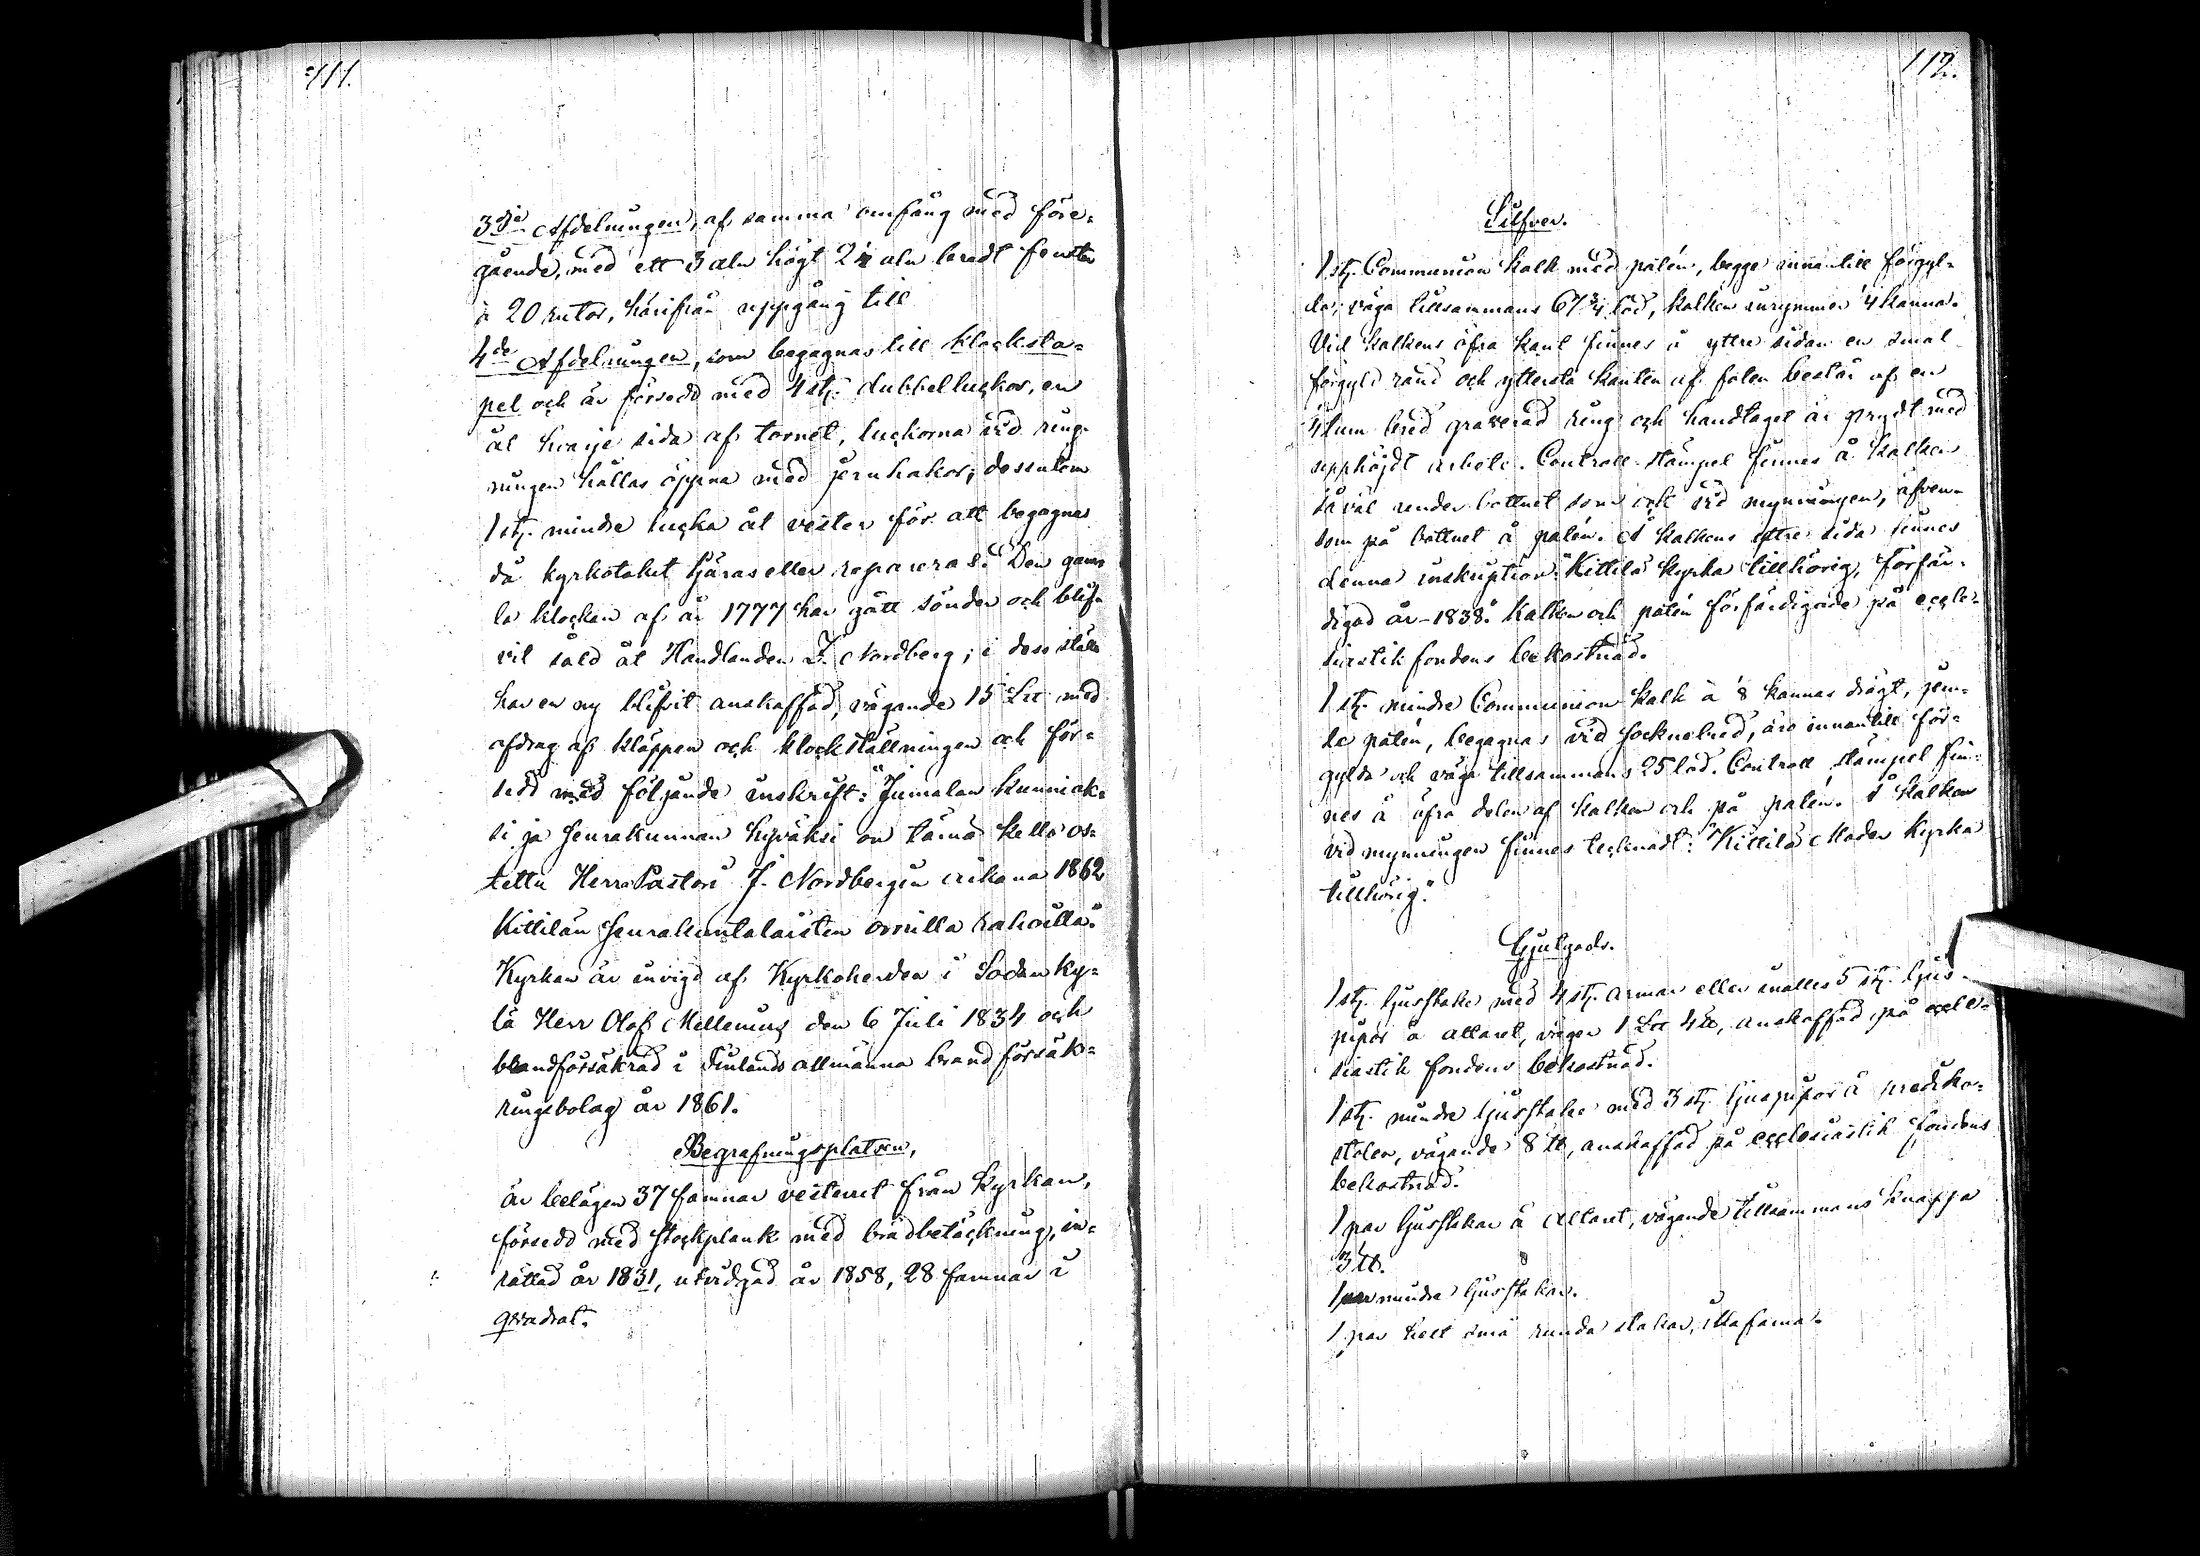 111.
3dje Afdelningen, af samma omfång med före-
gående, med ett 3 aln högt 2 aln bredt fenster
à 20 rutor, härifrån uppgång till
4de Afdelningen, som begagnas till klocksta-
pel och är försedd med 4 st. dubbelluckor, en
åt hvarje sida af tornet, luckorna vid ring-
ningen hållas öppna med jernhakor; dessutom
1 st. mindre lucka åt vester för att begagnas
då kyrkotaket tjäras eller repareras." Den gam-
la klockan af år 1777 har gått sönder och blif-
vit såld åt Handlanden J. Nordberg; i dess ställe
har en ny blifvit anskaffad, vägande 15 L℔ med
afdrag af kläppen och klockställningen och för-
sedd med följande inskrift: "Jumalan kunniak-
si ja seurakunnan hyväksi on tämä kello os-
tettu Herra Pastori J. Nordbergin aikana 1862
Kittilän seurakuntalaisten omilla rahoilla."
Kyrkan är invigd af Kyrkoherden i Sodanky-
lä Herr Olof Mellenius den 6 Juli 1834 och
brandförsäkrad i Finlands allmänna brandförsäk-
ringsbolag år 1861.
Begrafningsplatsen,
är belägen 37 famnar vesterut från kyrkan,
försedd med stockplank med brädbetäckning, in-
rättad år 1831, utvidgad år 1858, 28 famnar i
qvadrat.
112.
Silfver.
1 st. Communion kalk med patén, begge innantill förgyl-
da, väga tillsammans 67 3/4 lod, kalken inrymmer kanna.
Vid kalkens öfra kant finnes å yttre sidan en smal
förgyld rand och yttersta kanten af foten består af en
tum bred graverad ring och handtaget är prydt med
upphöjdt arbete. Controll-stämpel finnes å kalken
såväl under bottnet som ock vid mynningen, äfven-
som på bottnet å patén. Å kalkens yttre sida finnes
denna inskription: "Kittilä kyrka tillhörig, förfär-
digad år 1838." Kalken och patén förfärdigade på eccle-
siastik fondens bekostnad.
1 st. mindre Communion kalk à kannas drägt, jem-
te patén, begagnas vid socknebud, äro innantill för-
gylda och väga tillsammans 25 lod. Controll stämpel fin-
nes å öfra delen af kalken och på patén. Å kalken
vid mynningen finnes tecknadt: "Kittilä Moder Kyrka
tillhörig."
Ljusredsk.
1 st. ljusstake med 4 st. armar eller inalles 5 st. ljus-
pipor å altaret, väger 1 L℔ 4 ℔, anskaffad på eccle-
siastik fondens bekostnad.
1 st. mindre ljusstake med 3 st. ljuspipor å prediko-
stolen, vägande 8 ℔, anskaffad på ecclesiastik fondens
bekostnad.
1 par ljusstakar å altaret, vägande tillsammans knappa
3 ℔.
1 par mindre ljusstakar.
1 par helt små runda stakar,